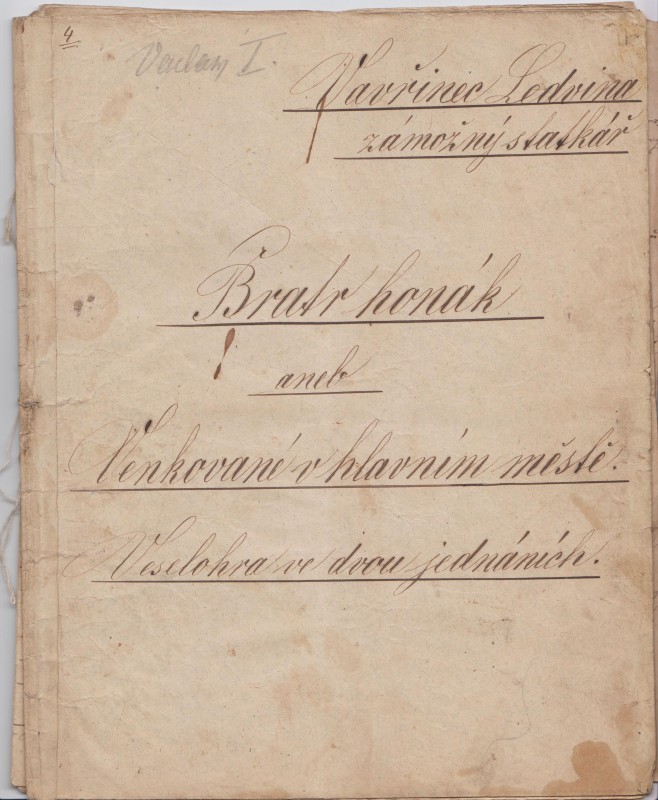 4
Vaclav I.
Vavřinec Ledvina
zámožný statkář
Bratr honák
aneb
Venkované v hlavním městě.
Veselohra ve dvou jednáních.